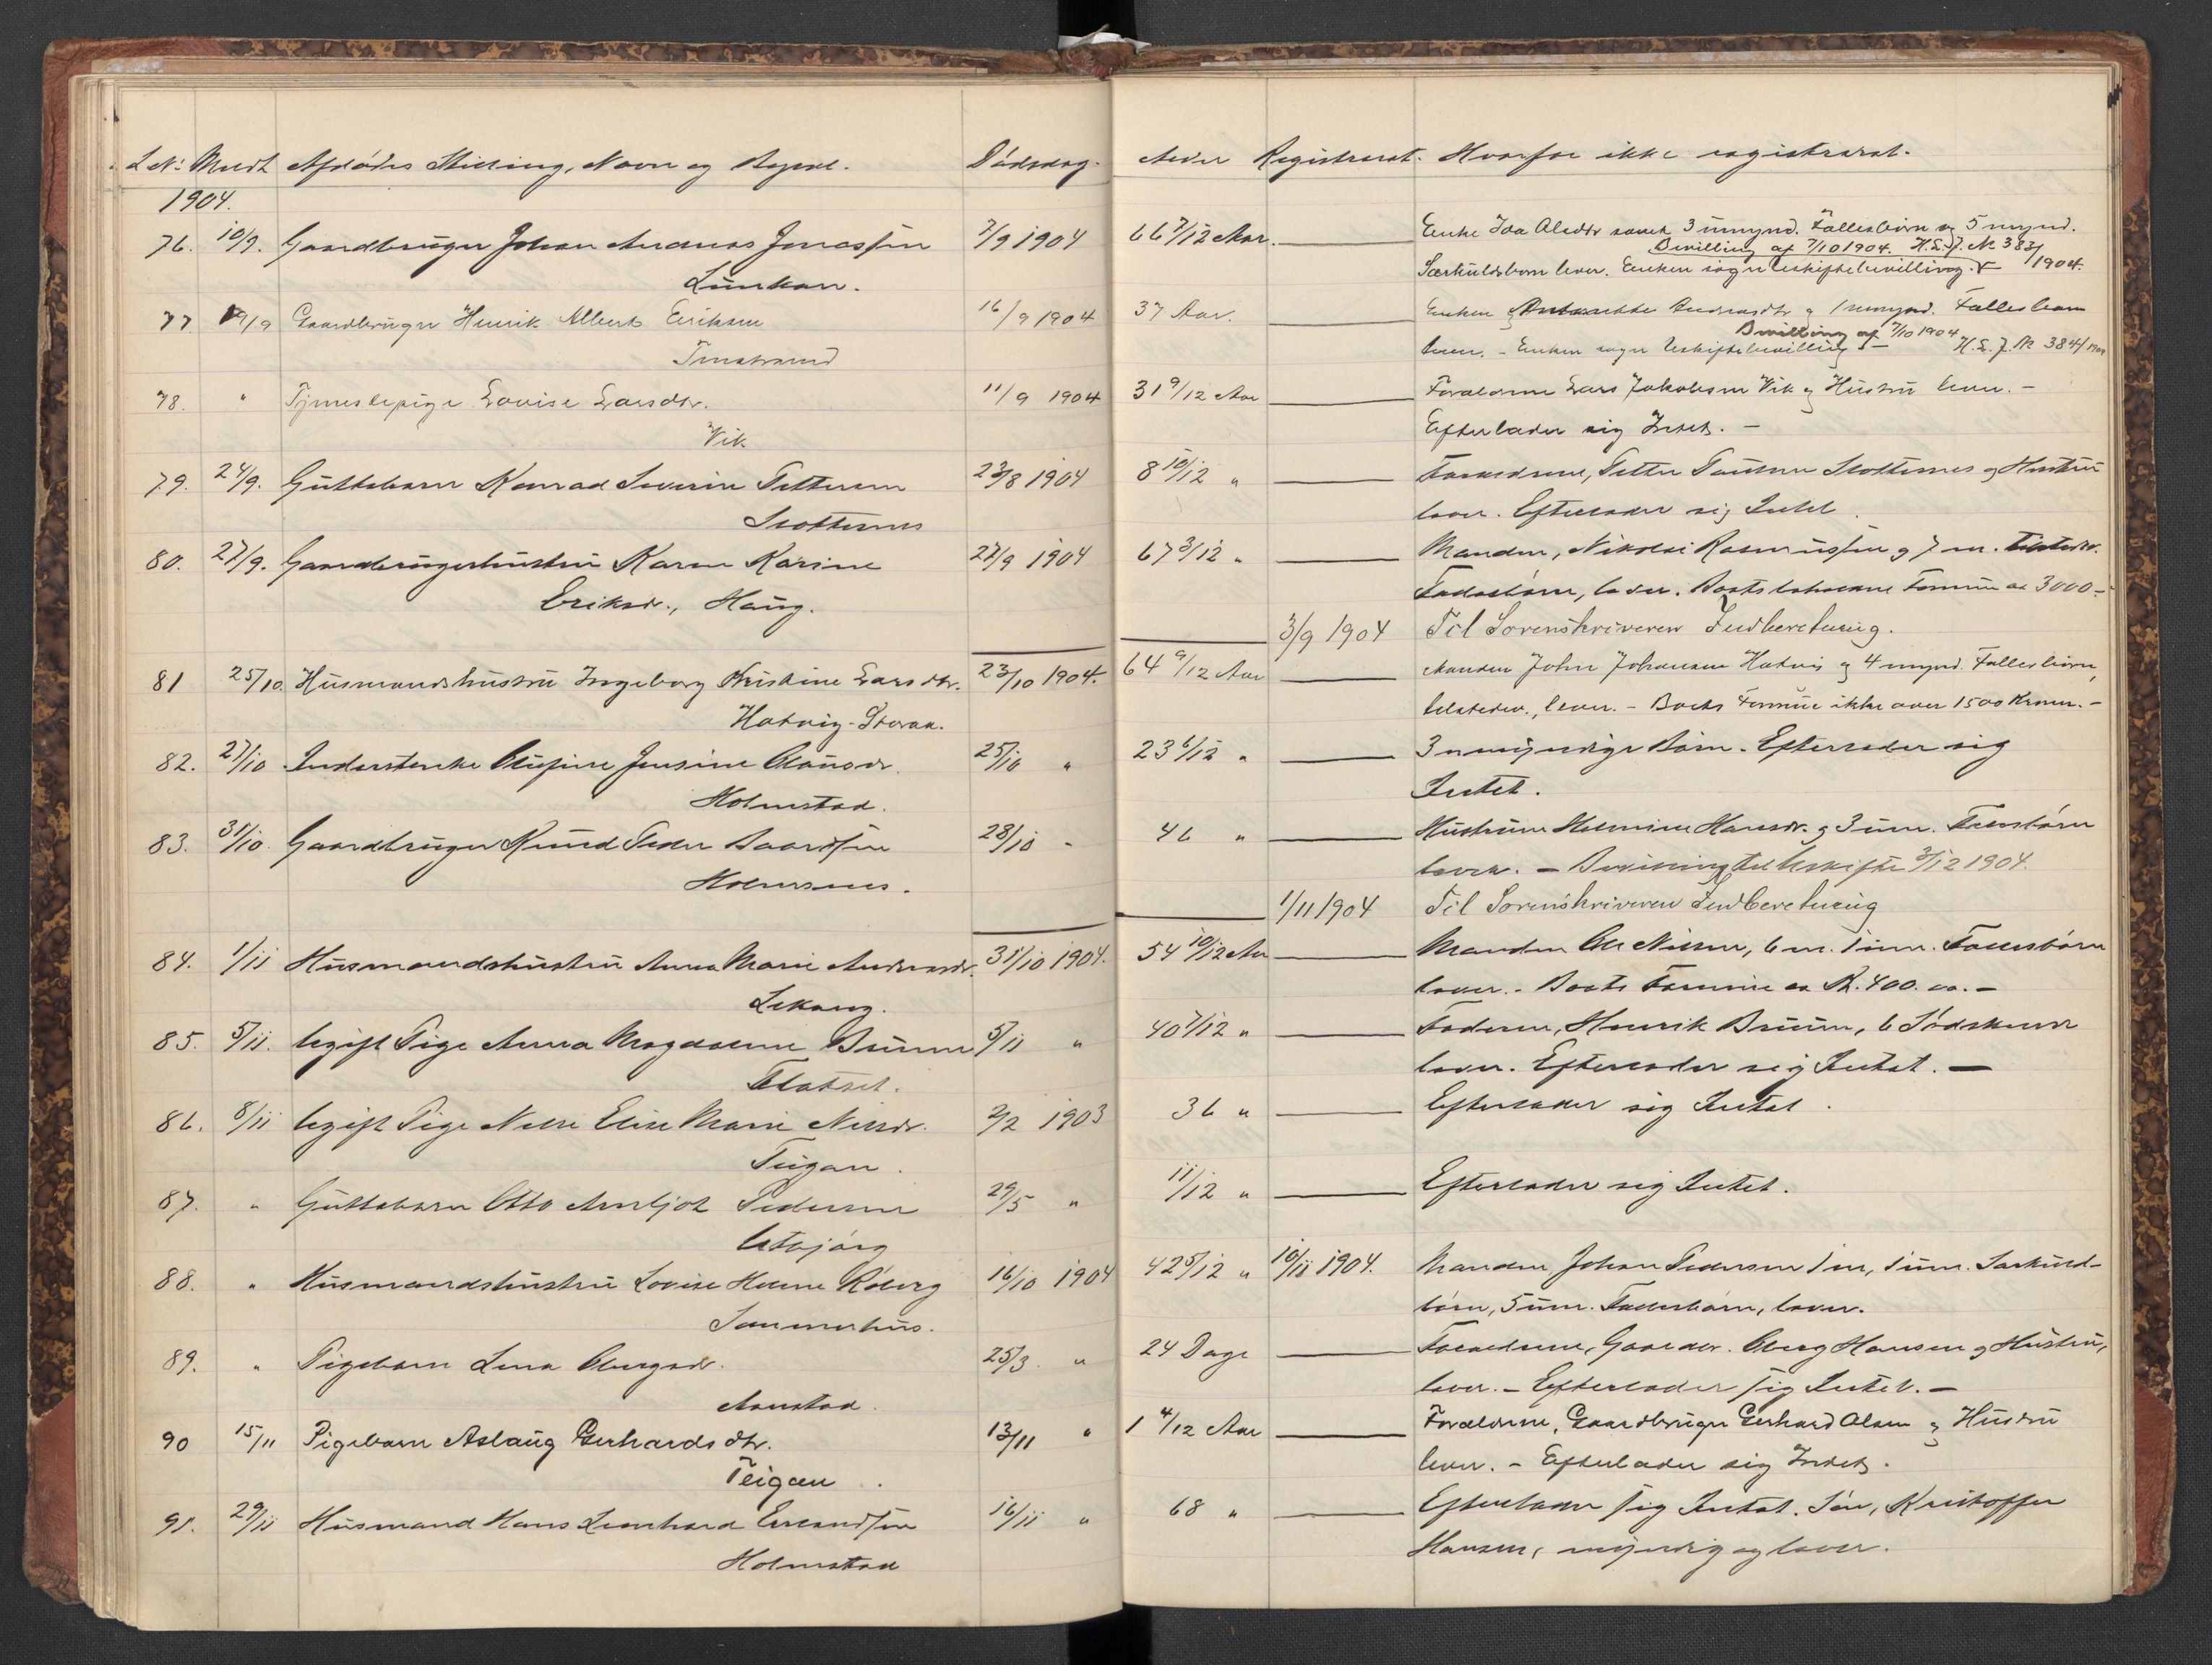 L.N: Meldt Afdødes Stilling, Navn og Bopæl. Dødsdag. Alder Registreret. Hvorfor ikke registreret.
1904.
76. 10/9. Gaardbruger Johan Andreas Jonassen 7/9 1904 66 7/12 Aar. Enke Ida Olsdtr samt 3 umynd. Fællesbørn og 5 mynd.
Bevilling af 7/10 1904. H.S.J. No 383/1904.
Lunkan. Særkuldsbørn lever. Enken søger Uskiftebevilling.
77 19/9 Gaardbruger Henrik Albert Eriksen 16/9 1904 37 Aar. Enken Andreasdtr og 1 umynd. Fællesbarn
Bevilling af 7/10 1904 H.S.J. No 384/1904
Tinstrand lever. - Enken søger Uskiftebevilling -
78. " Tjenestepige Lovise Larsdtr. 11/9 1904 31 9/12 Aar Forældrene Lars Jakobsen Vik og Hustru lever. -
Vik Efterlader sig Intet. -
79. 24/9. Guttebarn Konrad Severin Pettersen 23/8 1904 8 10/12 " Forældrene, Petter Paulsen Slottenes og Hustru
Slottenes lever. Efterlader sig Intet.
80. 27/9. Gaardbrugerhustru Karen Karine 27/9 1904 67 3/12 " Manden, Nikolai Rasmussen og 7 m. tilstedev.
Eriksdr., Haug. Fællesbørn, lever. Boets beholdne Formue ca 3000.-
3/9 1904 Til Sorenskriveren Indberetning.
81 25/10. Husmandshustru Ingeborg Kristine Larsdtr. 23/10 1904. 64 9/12 Aar Manden John Johansen Hatvig og 4 mynd. Fællesbørn,
Hatvig-Storaa. tilstedev., lever. - Boets Formue ikke over 1500 Kroner. -
82. 27/10 Inderstenke Olufine Jensine Clausdr. 25/10 " 23 6/12 " 3 umyndige Børn. Efterlader sig
Holmstad. Intet.
83. 31/10. Gaardbruger Knud Peder Baardsen 28/10 - 46 " Hustruen Helmine Hansdr. og 3 um. Fællesbørn
Holmsnes. lever. - Bevilling til Uskifte 3/12 1904.
1/11 1904 Til Sorenskriveren Indberetning
84. 1/11 Husmandshustru Anna Marie Andreasdr. 31/10 1904. 54 10/12 Aar Manden Ole Nilsen, 6 m. 1 um. Fællesbørn
Lekang. lever. - Boets Formue ca Kr. 400. oo. -
85. 5/11. Ugift Pige Anna Magdalene Bruun 5/11 " 40 7/12 " Faderen, Henrik Bruun, 6 Sødskende
Flatset. lever. Efterlader sig Intet. -
86. 8/11 Ugift Pige Nelle Elise Marie Nilsdr. 2/2 1903 36 " Efterlader sig Intet.
Tugan.
87. " Guttebarn Otto Arnljot Pedersen 29/5 " 11/12 " Efterlader sig Intet.
Utbjørg
88. " Husmandshustru Lovise Helene Røberg 16/10 1904 42 5/12 " 10/11 1904. Manden, Johan Pedersen 1 m, 1 um. Særkuld-
Sommerhus. børn, 5 um. Fællesbørn, lever.
89. " Pigebarn Lina Obergsdr. 25/3. " 24 Dage Forældrene, Gaardbr. Oberg Hansen og Hustru,
Aanstad. lever. - Efterlader sig Intet. -
90 15/11 Pigebarn Aslaug Gerhardsdtr. 13/11 " 1 4/12 Aar Forældrene, Gaardbruger Gerhard Olsen og Hustru
Teigan. lever. - Efterlader sig Intet.
91. 29/11 Husmand Hans Leonhard Erlandsen 16/11 " 68 " Efterlader sig Intet. Søn, Kristoffer
Holmstad Hansen, myndig og lever.